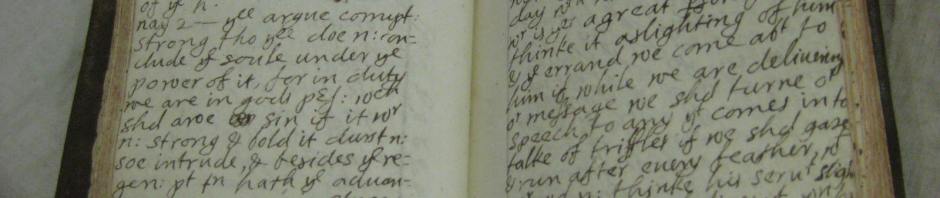 of yͤ n.
nay 2 — yee argue corrupt:
strong tho yee doe n: con=
clude yͤ soule under yͤ
power of it, for in duty
we are in gods pẽs: wch
shd awe sin if it wr
n: strong & bold it durst n:
soe intrude, & besides yͤ re=
gen: pt in hath yͤ advan=
day
is yͤ a great
thinke it aslighting of him
& yͤ errand we come abt to
him if while we are delivering
or message we shd turne or
speech to any yt comes in to
talke of triffles if we shd gaze
& run after every feather,
n: thinke his servt